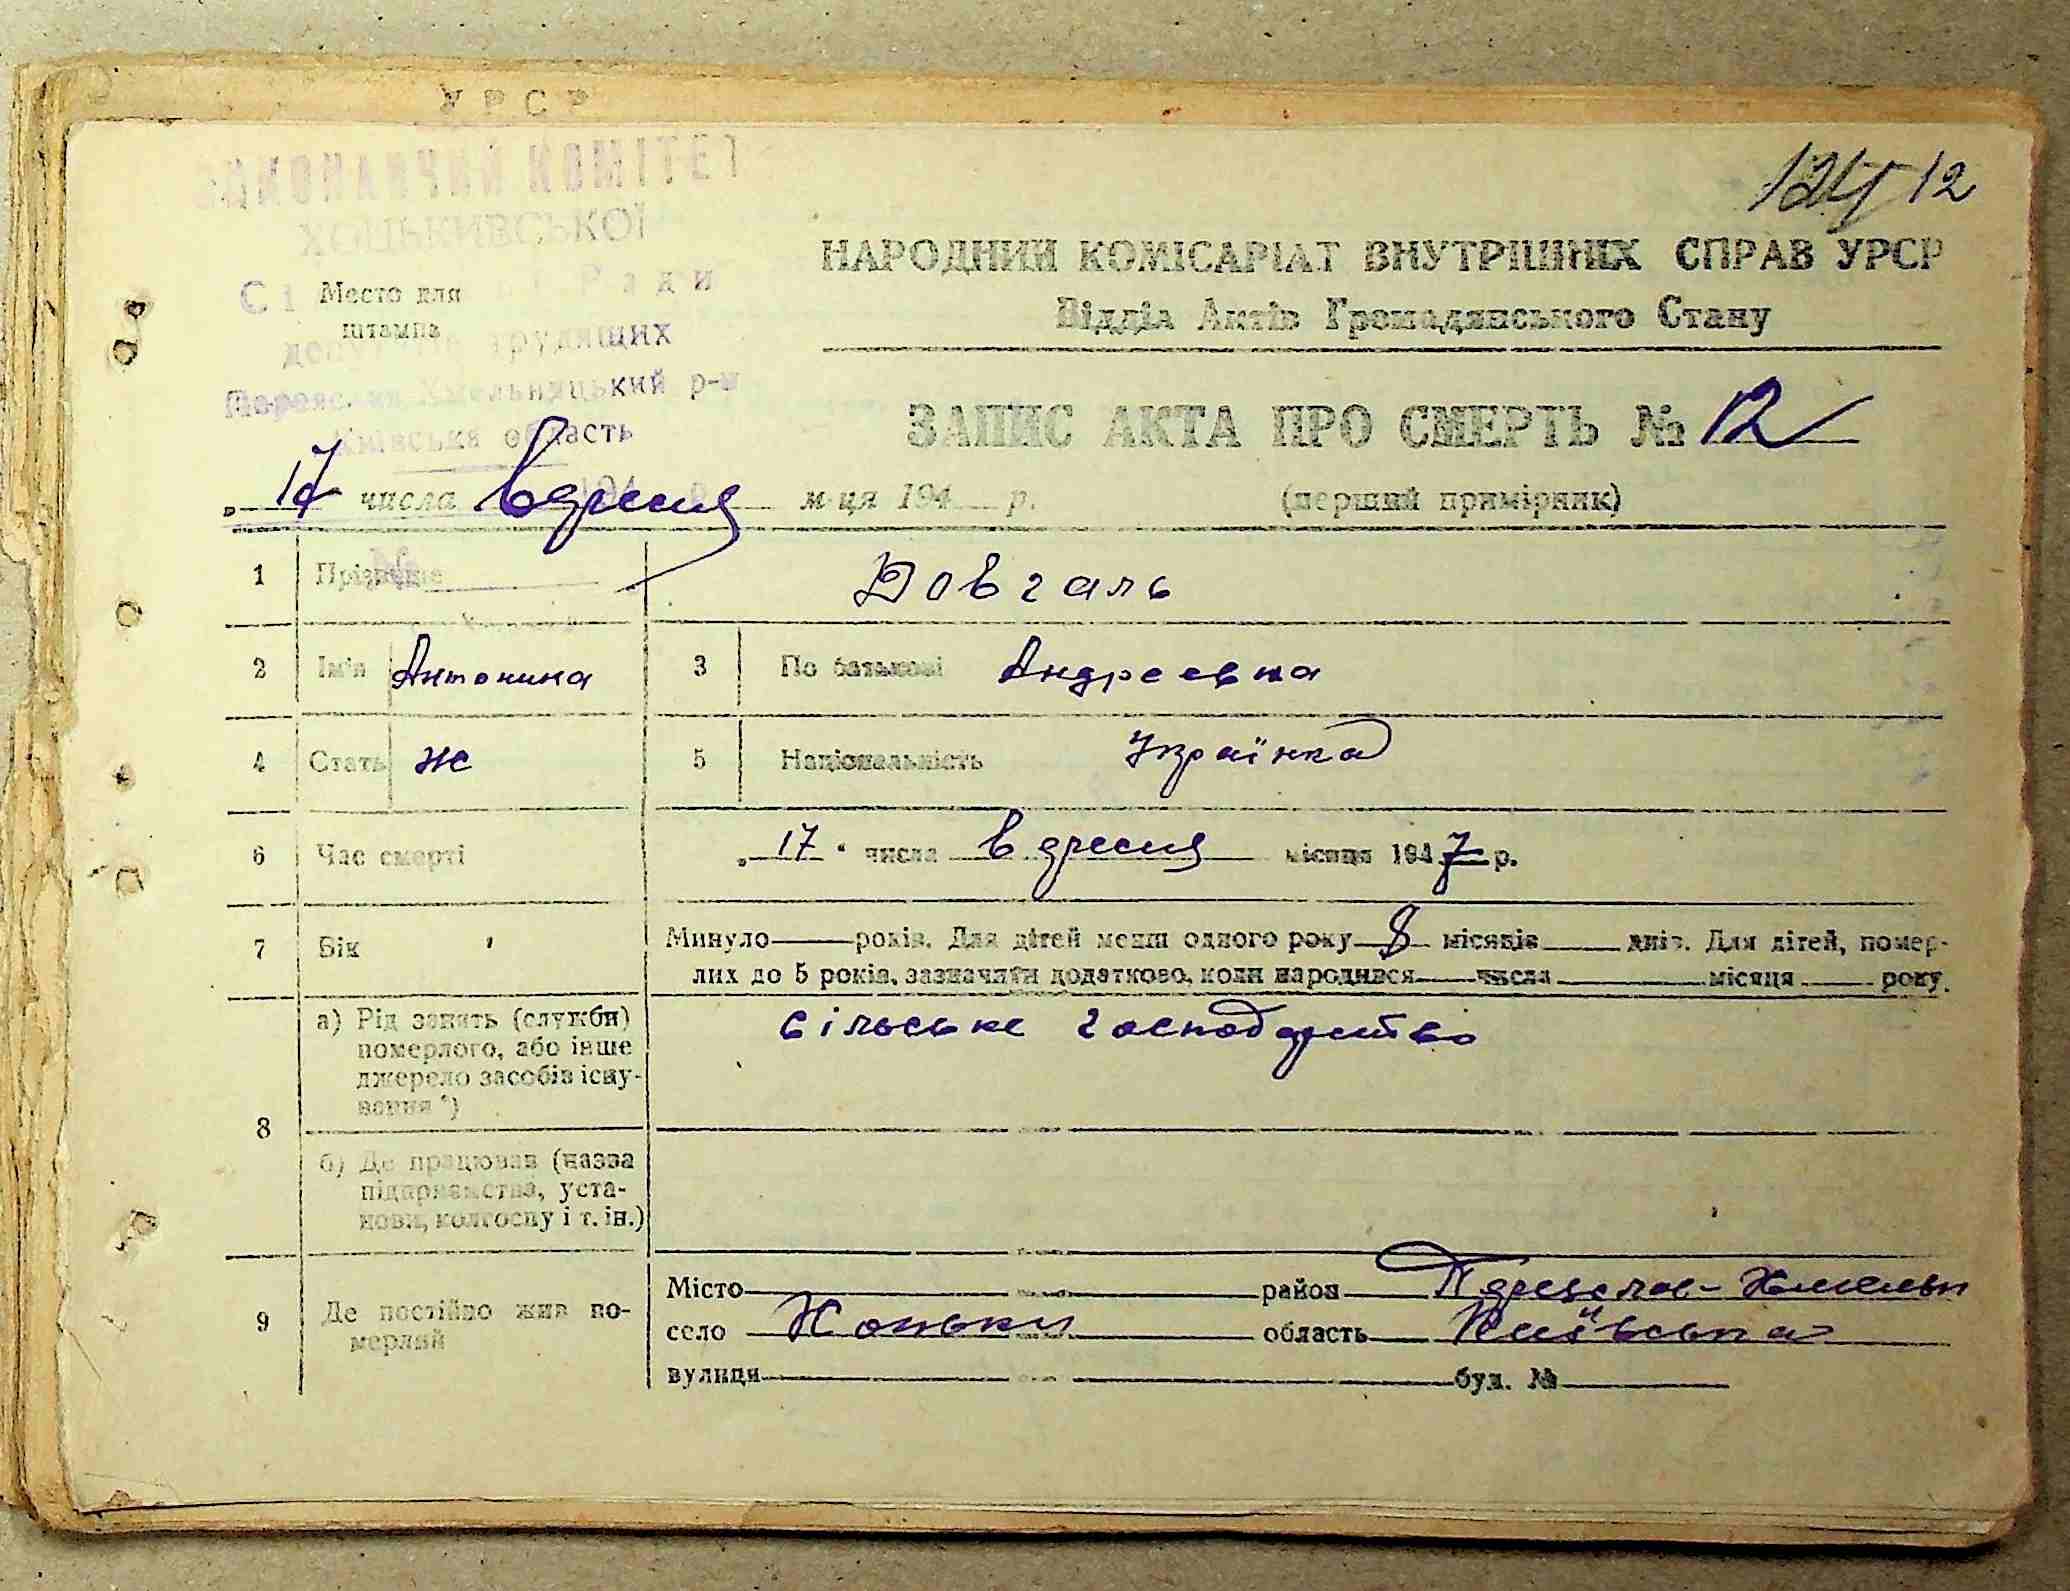 УРСР
ВИКОНАВЧИЙ КОМІТЕТ
ХОЦЬКИВСЬКОЇ
Ради
Место для
штампа
трудящих
Хмельницький р-н
Київська область
124 12
НАРОДНИЙ КОМІСАРІАТ ВНУТРІШНІХ СПРАВ УРСР
Відділ Актів Громадянського Стану
ЗАПИС АКТА ПРО СМЕРТЬ № 12
„ 17 числа вдресня м-ця 194 р. (перший примірник)
1 Прізвище Довгаль
2 Ім'я Антонина 3 По батькові Андреевна
4 Стать ж 5 Національність Українка
6 Час смерті „ 17 " числа вдресня місяця 1947 р.
7 Вік Минуло років. Для дітей менш одного року 8 місяців днів. Для дітей, помер-
лих до 5 років, зазначити додатково, коли народився числа місяця року.
8 а) Рід занять (служби)
померлого, або інше
джерело засобів існу-
вання *)
сільське господарство
б) Де працював (назва
підприємства, уста-
нови, колгоспу і т. ін.)
9 Де постійно жив по-
мерлий
Місто район Переяслав-Хмельн
село Хоцьки область Київська
вулиця буд. №